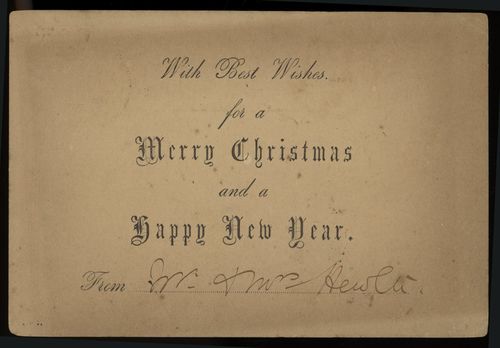 With Best Wishes.
for a
Merry Christmas
and a
Happy New Year.
From Mr. & Mrs